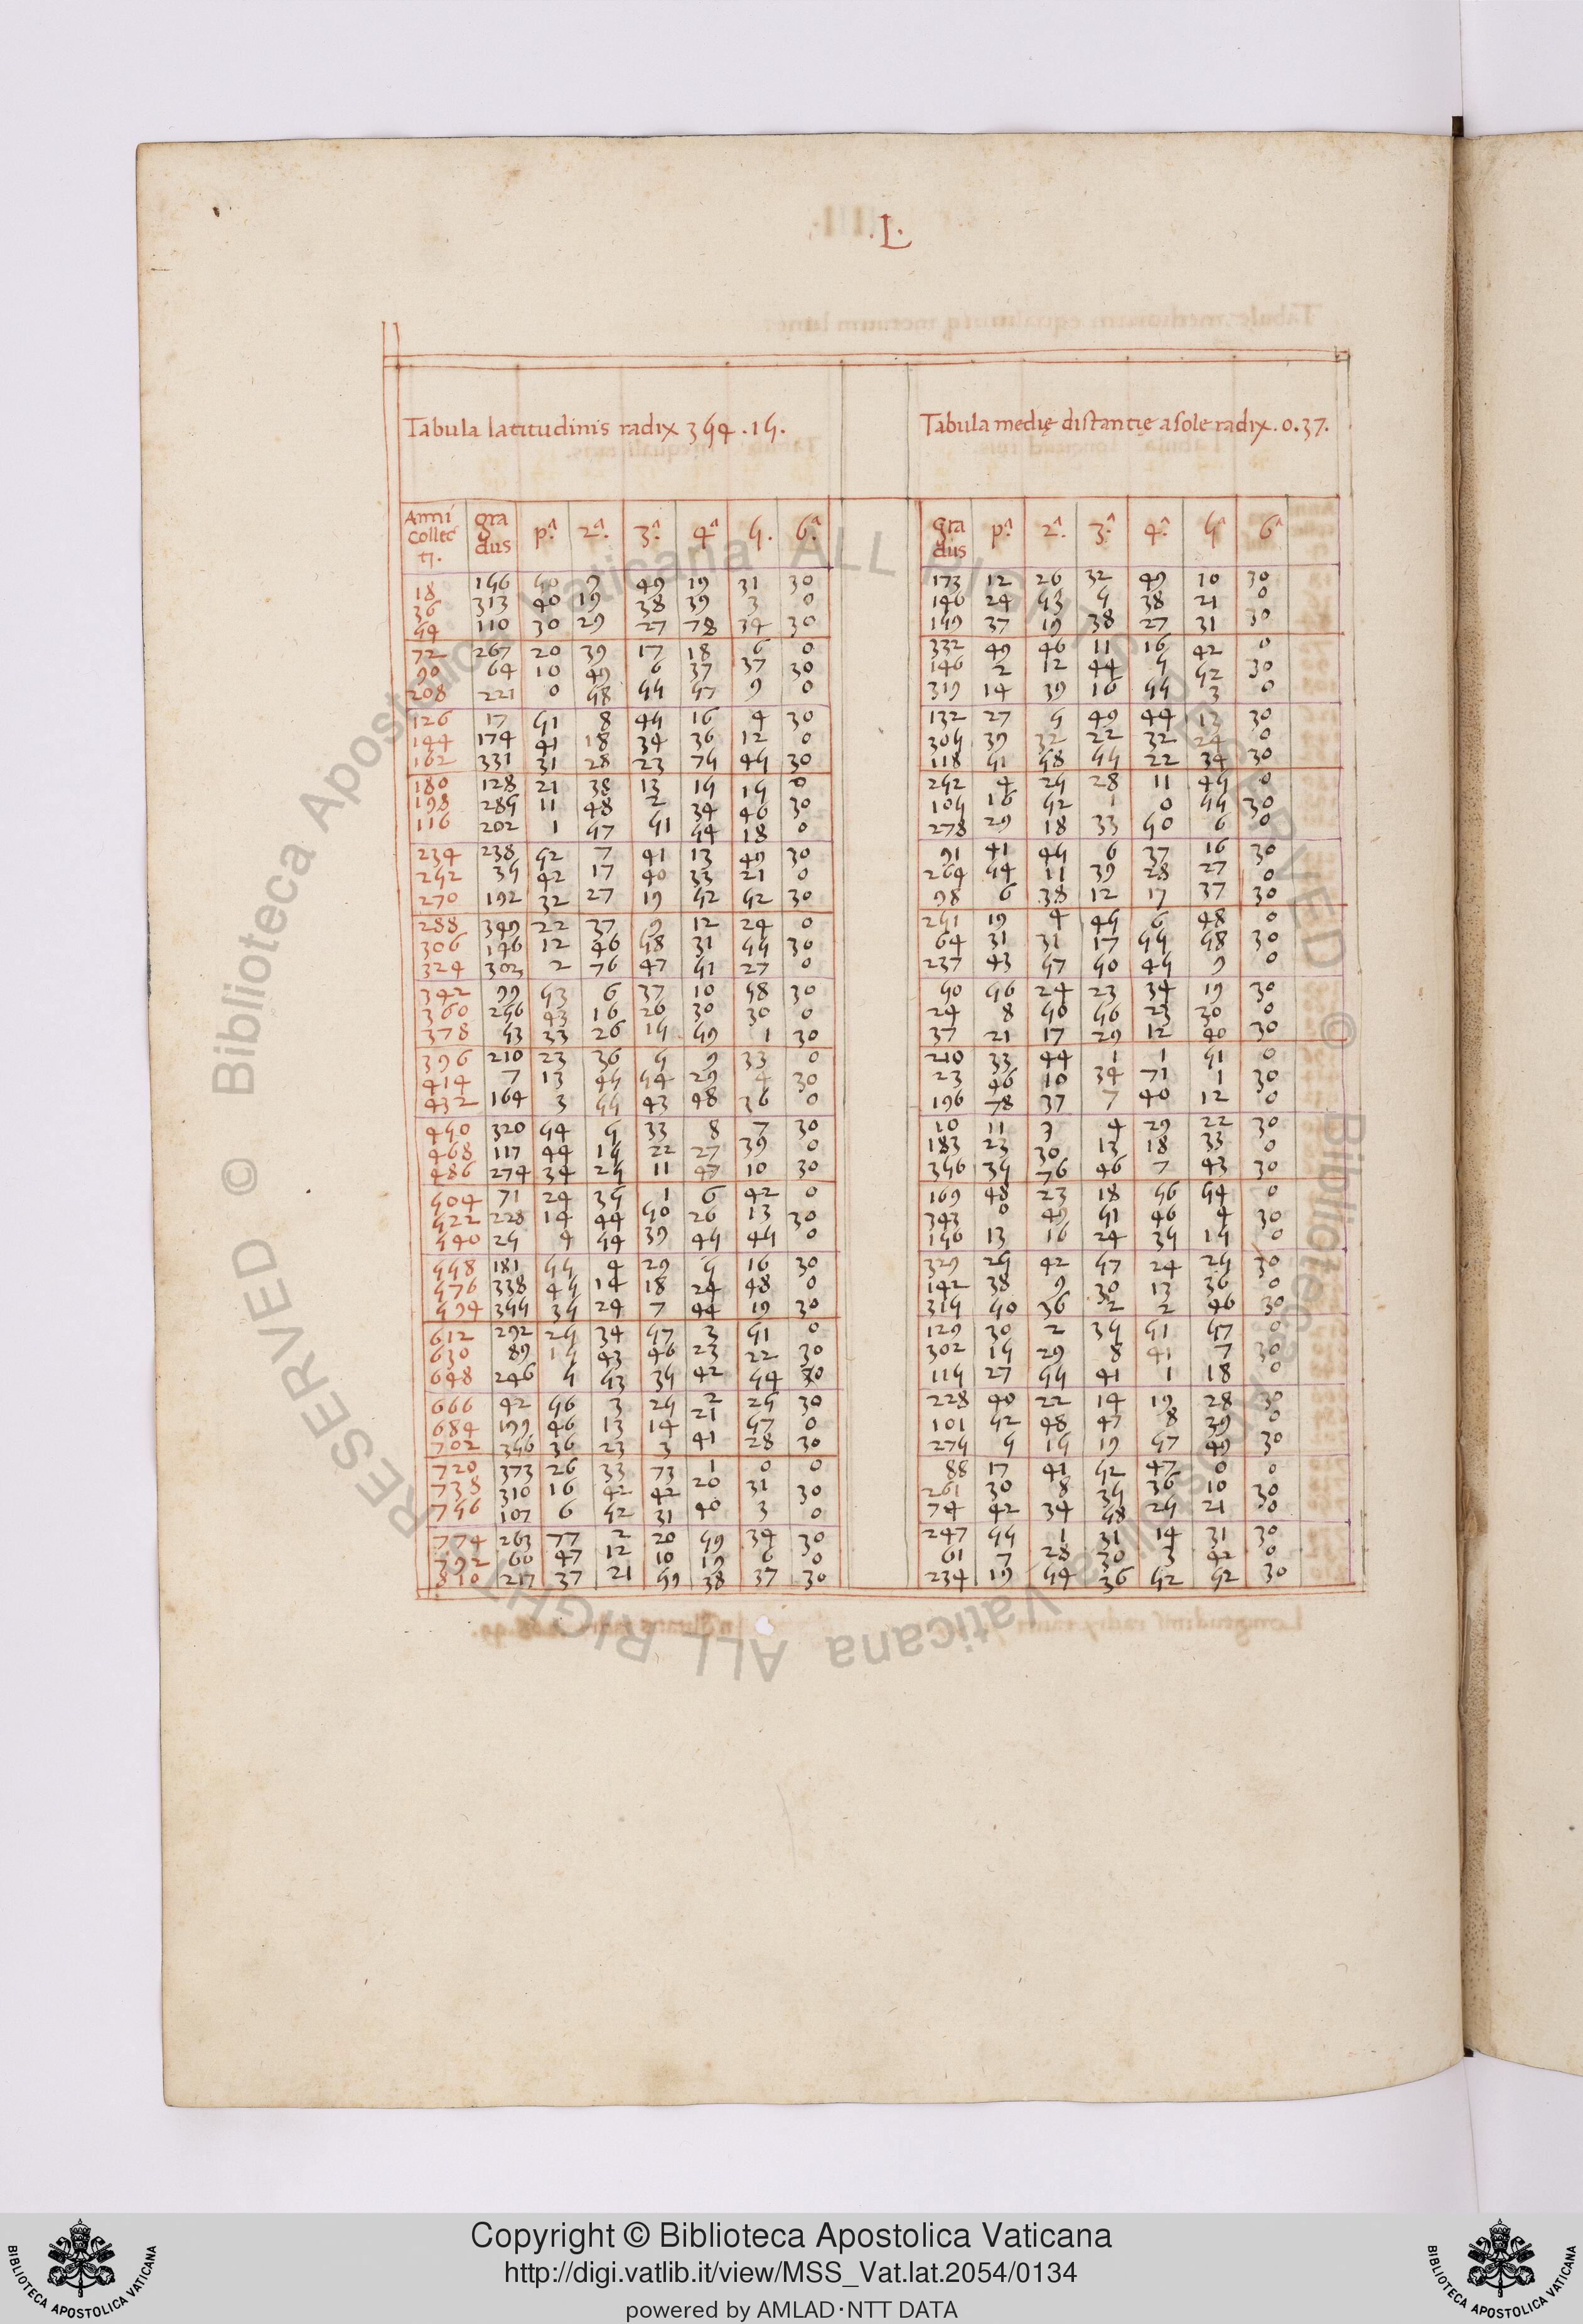 L.
Tabula latitudinis radix 354.15. Tabula medię distantię a sole radix.0.37.
Anni collecti. gradus p.ᵃ 2.ᵃ 3.ᵃ 4.ᵃ 5. 6.ᵃ gradus p.ᵃ 2.ᵃ 3.ᵃ 4.ᵃ 5ᵃ 6ᵃ
18 156 50 9 49 19 31 30 173 12 26 32 49 10 30
36 313 40 19 38 39 3 0 146 24 53 5 38 21 0
54 110 30 29 27 78 34 30 159 37 19 38 27 31 30
72 267 20 39 17 18 6 0 332 49 46 11 16 42 0
90 64 10 49 6 37 37 30 146 2 12 44 5 52 30
208 221 0 58 55 57 9 0 319 14 39 16 55 3 0
126 17 51 8 45 16 4 30 132 27 5 49 44 13 30
144 174 41 18 34 36 12 0 305 39 32 22 32 24 0
162 331 31 28 23 75 45 30 118 51 58 55 22 34 30
180 128 21 38 13 15 15 0 252 4 25 28 11 45 0
198 285 11 48 2 34 46 30 105 16 52 1 0 55 30
116 202 1 57 51 54 18 0 278 29 18 33 50 6 0
234 238 52 7 41 13 49 30 91 41 45 6 37 16 30
252 35 42 17 40 33 21 0 264 54 11 39 28 27 0
270 192 32 27 19 52 52 30 98 6 38 12 17 37 30
288 349 22 37 9 12 24 0 251 19 4 45 6 48 0
306 146 12 46 58 31 55 30 64 31 31 17 55 58 30
324 302 2 76 47 51 27 0 237 43 57 50 45 9 0
342 99 53 6 37 10 58 30 50 56 24 23 34 19 30
360 256 43 16 26 30 30 0 24 8 50 56 23 30 0
378 53 33 26 15 59 1 30 37 21 17 29 12 40 30
396 210 23 36 5 9 33 0 210 33 44 1 1 51 0
414 7 13 45 54 29 4 30 23 46 10 34 71 1 30
432 164 3 55 43 48 36 0 196 78 37 7 40 12 0
450 320 54 5 33 8 7 30 10 11 9 4 29 22 30
468 117 44 15 22 27 39 0 183 23 30 13 18 33 0
486 274 34 25 11 47 10 30 356 35 76 46 7 43 30
504 71 24 35 1 6 42 0 169 48 23 18 56 54 0
522 228 14 44 50 26 13 30 343 0 49 51 46 4 30
540 25 4 54 39 45 45 0 156 13 16 24 35 15 0
558 181 55 4 29 5 16 30 329 25 42 57 24 25 30
576 338 45 14 18 24 48 0 142 38 9 30 13 36 0
594 355 35 24 7 44 19 30 315 50 36 2 2 46 30
612 292 25 34 57 3 51 0 129 30 2 35 51 57 0
630 89 15 43 46 23 22 30 302 15 29 8 41 7 30
648 246 5 53 35 42 54 30 115 27 55 41 1 18 0
666 42 56 3 25 2 25 30 228 40 22 14 19 28 30
684 199 46 13 14 21 57 0 101 52 48 47 8 39 0
702 356 36 23 3 41 28 30 275 5 15 19 57 49 30
720 373 26 33 73 1 0 0 88 17 41 52 47 0 0
738 310 16 42 42 20 31 30 261 30 8 35 36 10 30
756 107 6 52 31 40 3 0 74 42 34 58 25 21 0
774 263 77 2 20 59 34 30 247 55 1 31 14 31 30
792 60 47 12 10 19 6 0 61 7 28 30 3 42 0
810 217 37 21 59 38 37 30 234 19 54 36 52 52 30
Copyright © Biblioteca Apostolica Vaticana
http://digi.vatlib.it/view/MSS_Vat.lat.2054/0134
powered by AMLAD·NTT DATA
BIBLIOTECA APOSTOLICA VATICANA
BIBLIOTECA APOSTOLICA VATICANA